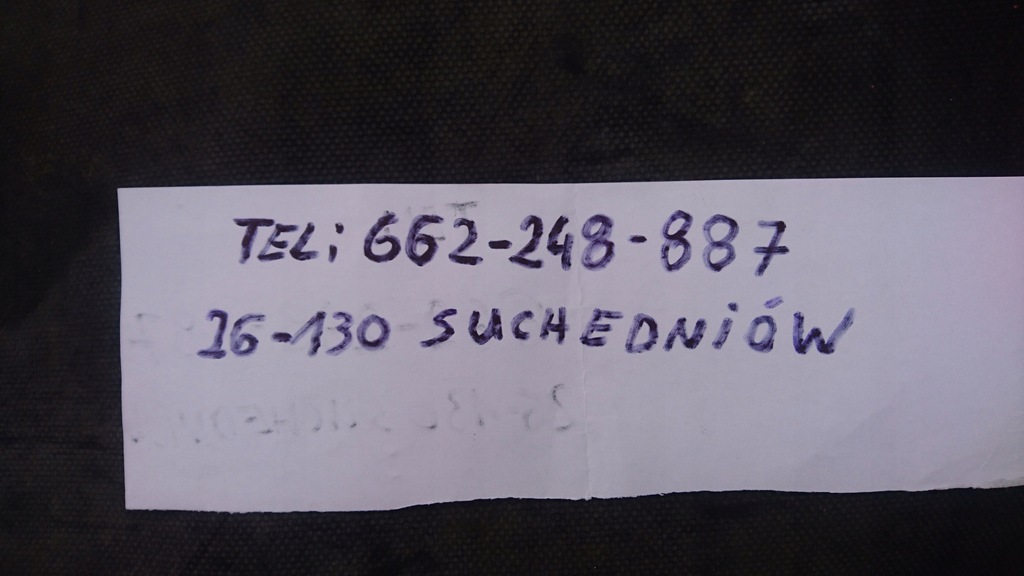 TEL: 662-248-887
26-130 SUCHEDNIÓW